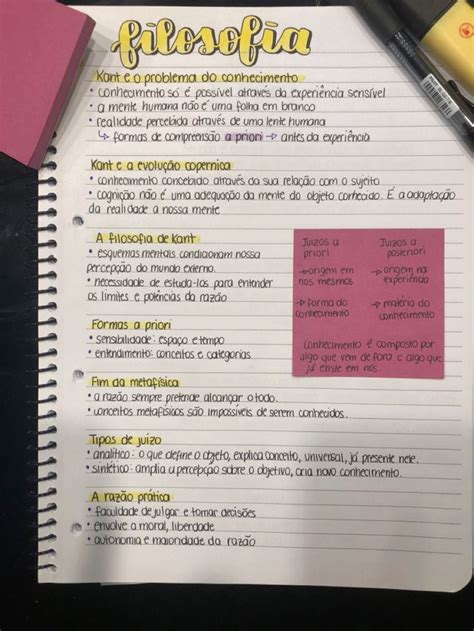 filosofia
Kant e o problema do conhecimento
• conhecimento só é possível através da experiência sensível
• a mente humana não é uma folha em branco
• realidade percebida através de uma lente humana
↳ formas de compreensão a priori → antes da experiência
Kant e a evolução copernica
• conhecimento concebido através da sua relação com o sujeito
• cognição não é uma adequação da mente do objeto conhecido. É a adaptação
da realidade a nossa mente
A filosofia de Kant
• esquemas mentais condicionam nossa
percepção do mundo externo.
• necessidade de estuda-los para entender
os limites e potências da razão
Juizos a
priori
→ origem em
nos mesmos
→ forma do
conhecimento
Juizos a
posteriori
→ origem na
experiência
→ matéria do
conhecimento
Conhecimento é composto por
algo que vem de fora e algo que
já existe em nós.
Formas a priori
• sensibilidade: espaço e tempo
• entendimento: conceitos e categorias
Fim da metafísica
• a razão sempre pretende alcançar o todo.
• conceitos metafísicos são impossíveis de serem conhecidos.
Tipos de juízo
• analítico: o que define o objeto, explica conceito, universal, já presente nele.
• sintético: amplia a percepção sobre o objetivo, cria novo conhecimento.
A razão prática
• faculdade de julgar e tomar decisões
• envolve a moral, liberdade
• autonomia e maioridade da razão